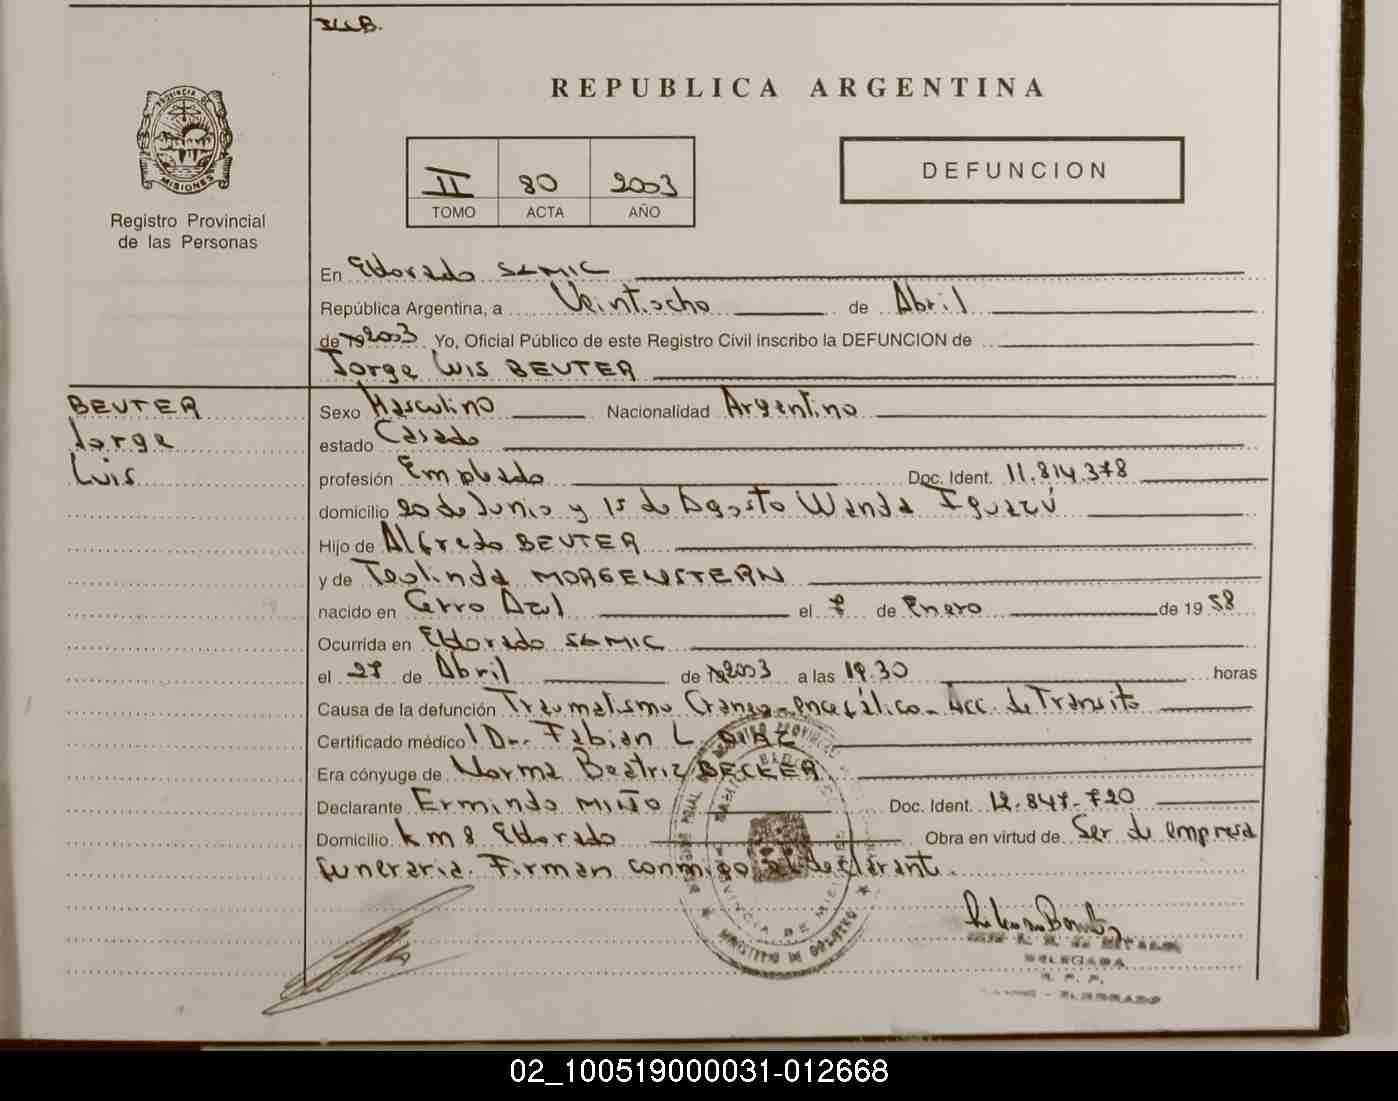 REPUBLICA ARGENTINA
PROVINCIA DE
MISIONES
Registro Provincial
de las Personas
II 80 2003
TOMO ACTA AÑO
DEFUNCION
En Eldorado SAMIC
República Argentina, a Veintiocho de Abril
de 2003 Yo, Oficial Público de este Registro Civil inscribo la DEFUNCION de
Jorge Luis BEUTER
BEUTER
Jorge
Luis
Sexo Masculino Nacionalidad Argentino
estado Casado
profesión Empleado Doc. Ident. 11.814.378
domicilio 20 de Junio y 15 de Agosto Wanda Iguazú
Hijo de Alfredo BEUTER
y de Teolinda MORGENSTERN
nacido en Cerro Azul el 7 de Enero de 1958
Ocurrida en Eldorado SAMIC
el 27 de Abril de 2003 a las 19.30 horas
Causa de la defunción Traumatismo Craneo-encefálico - Acc. de Transito
Certificado médico Dr. Fabian L. DIAZ
Era cónyuge de Norma Beatriz BECKER
Declarante Ermindo MIÑO Doc. Ident. 12.847.720
Domicilio km 8 Eldorado Obra en virtud de Ser de empresa
funeraria. Firman conmigo el declarante.
PROVINCIA DE MISIONES
MINISTERIO DE GOBIERNO
DELEGADA
R. P. P.
ELDORADO
02_100519000031-012668